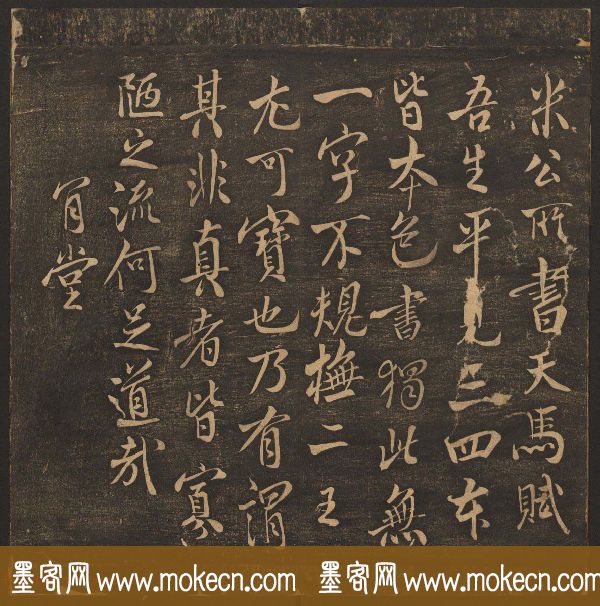 米公所書天馬賦
吾生平見三四本
皆本色書獨此無
一字不規橅二王
尤可寶也乃有謂
其非真者皆寡
陋之流何足道哉
肎堂
墨客网 www.mokecn.com 墨客网 www.mokecn.com